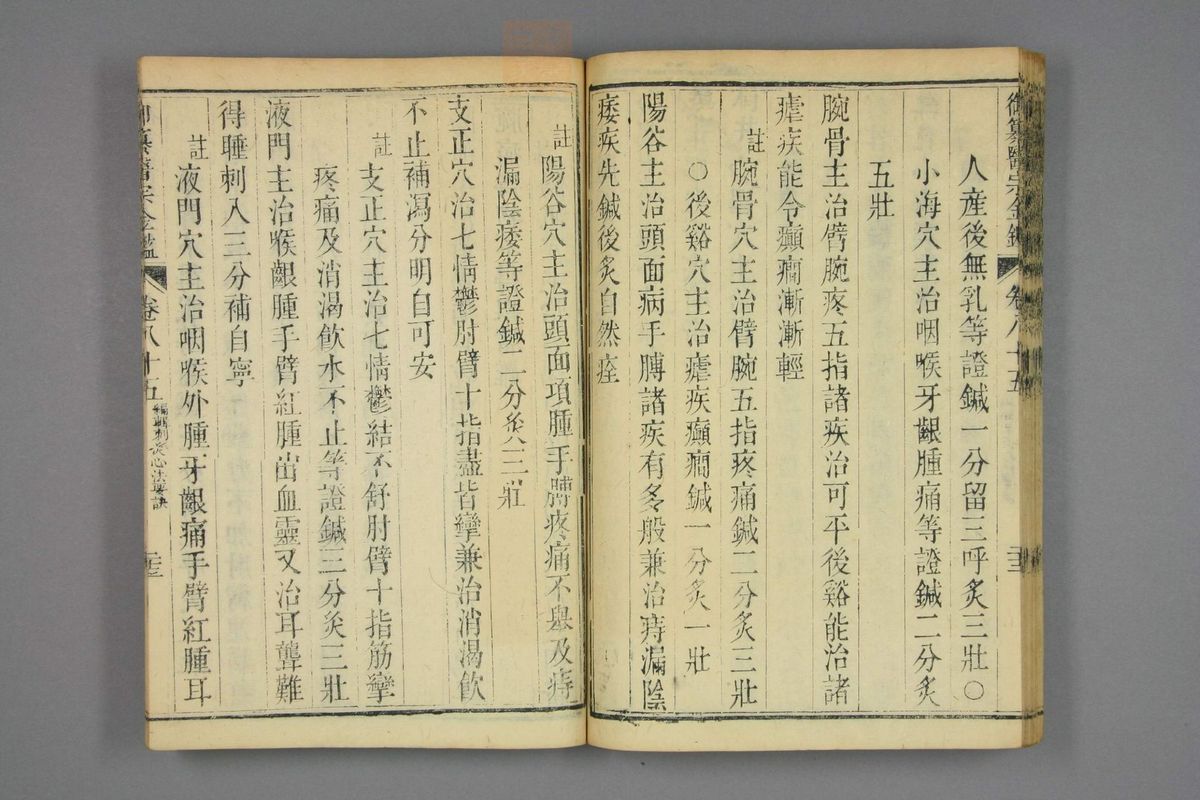 御纂醫宗金鑑 卷八十五 二十二
人產後無乳等證鍼一分留三呼炙三壯○
小海穴主治咽喉牙齦腫痛等證鍼二分炙
五壯
腕骨主治臂腕疼五指諸疾治可平後谿能治諸
瘧疾能令癲癎漸漸輕
註腕骨穴主治臂腕五指疼痛鍼二分炙三壯
○後谿穴主治瘧疾癲癎鍼一分炙一壯
陽谷主治頭面病手膊諸疾有多般兼治痔漏陰
痿疾先鍼後炙自然痊
註陽谷穴主治頭面項腫手膊疼痛不舉及痔
漏陰痿等證鍼二分炙三壯
支正穴治七情鬱肘臂十指盡皆攣兼治消渴飲
不止補瀉分明自可安
註支正穴主治七情鬱結不舒肘臂十指筋攣
疼痛及消渴飲水不止等證鍼三分炙三壯
液門主治喉齦腫手臂紅腫出血靈又治耳聾難
得睡刺入三分補自寧
註液門穴主治咽喉外腫牙齦痛手臂紅腫耳
御纂醫宗金鑑 卷八十五 編輯刺灸心法要訣